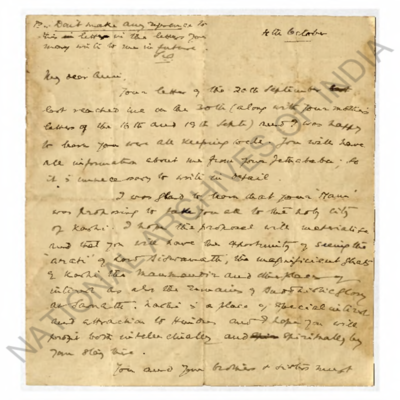 P.S. Don't make any reference to
this letter in the letters you
may write to me in future.
4th October
My dear
Your letter of the 20th September
last reached me on the 30th (along with your mother's
letters of the 16th and 19th Septr) and I was happy
to learn you were all keeping well. You will have
all information about me from your Jetababu. So
it is unnecessary to write in detail.
I was glad to learn that your "Mani"
was proposing to take you all to the holy city
of Kashi. I hope the proposal will materialise
and that you will have the opportunity of seeing the
arati of Lord Biswanath, the magnificient ghats
of Kashi, the and other places of
interest as also the remains of Buddhistic glory
at Sarnath. Kashi is a place of special interest
and attraction to Hindus and I hope you will
profit both intellectually and spiritually by
your stay there.
You and your brothers & sisters must
NATIONAL ARCHIVES OF INDIA